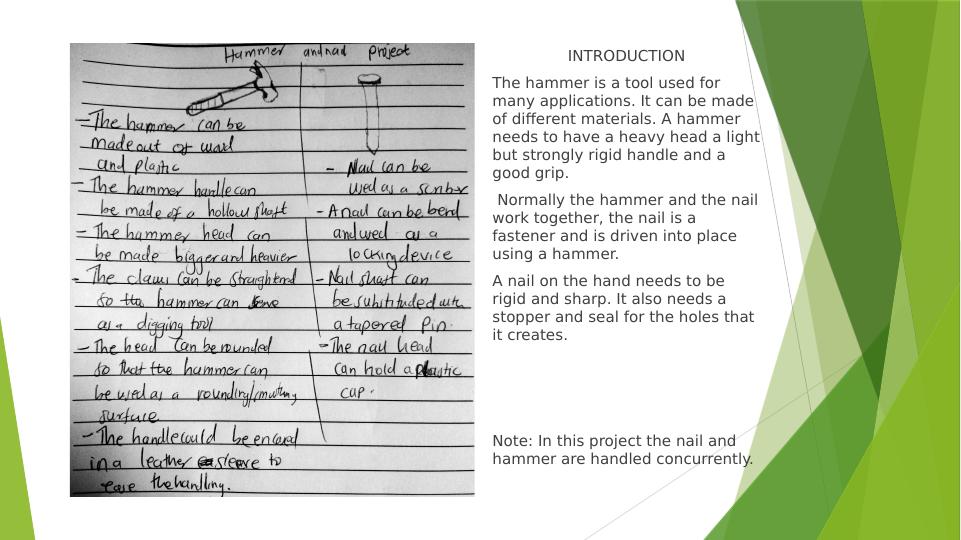 Hammer and nail project
- The hammer can be
made out of
and plastic
- The hammer handle can
be made of a hollow shaft
- The hammer head can
be made bigger and heavier
- The claws can be straightend
so the hammer can
as a digging tool
- The head can be rounded
so that the hammer can
be used as a rounding/
surface
- The handle could be encased
in a leather sleeve to
ease the handling.
- Nail can be
used as a
- A nail can be bend
and used as a
locking device
- Nail shaft can
be substituded with
a tapered pin.
- The nail head
can hold a plastic
cap.
INTRODUCTION
The hammer is a tool used for
many applications. It can be made
of different materials. A hammer
needs to have a heavy head a light
but strongly rigid handle and a
good grip.
Normally the hammer and the nail
work together, the nail is a
fastener and is driven into place
using a hammer.
A nail on the hand needs to be
rigid and sharp. It also needs a
stopper and seal for the holes that
it creates.
Note: In this project the nail and
hammer are handled concurrently.